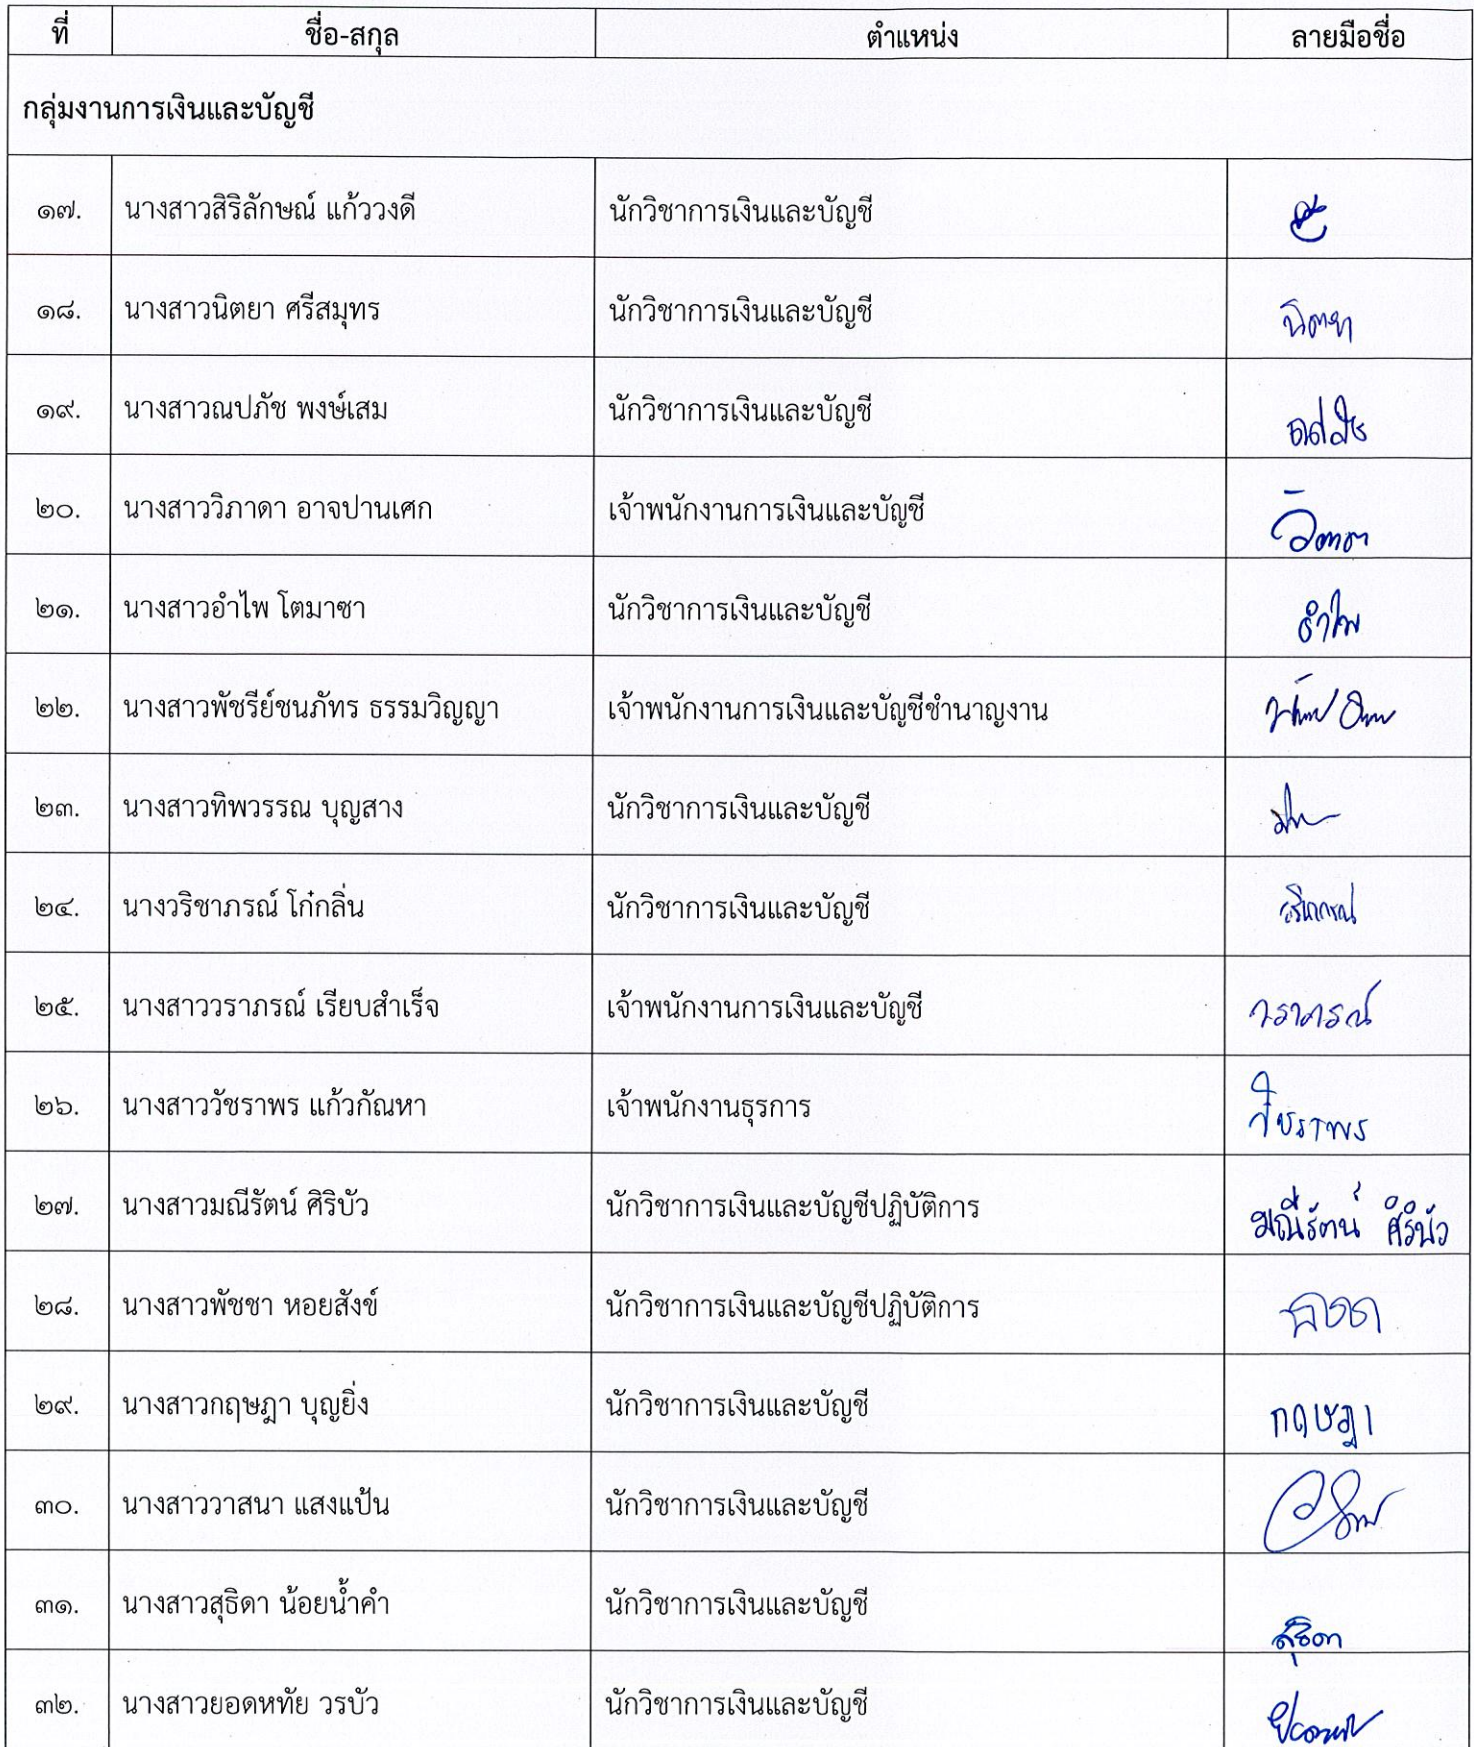 ที่ ชื่อ-สกุล ตำแหน่ง ลายมือชื่อ
กลุ่มงานการเงินและบัญชี
๑๗. นางสาวสิริลักษณ์ แก้ววงดี นักวิชาการเงินและบัญชี
๑๘. นางสาวนิตยา ศรีสมุทร นักวิชาการเงินและบัญชี นิตยา
๑๙. นางสาวณปภัช พงษ์เสม นักวิชาการเงินและบัญชี
๒๐. นางสาววิภาดา อาจปานเศก เจ้าพนักงานการเงินและบัญชี
๒๑. นางสาวอำไพ โตมาซา นักวิชาการเงินและบัญชี อำไพ
๒๒. นางสาวพัชรีย์ชนภัทร ธรรมวิญญา เจ้าพนักงานการเงินและบัญชีชำนาญงาน
๒๓. นางสาวทิพวรรณ บุญสาง นักวิชาการเงินและบัญชี
๒๔. นางวริชาภรณ์ โก๋กลิ่น นักวิชาการเงินและบัญชี วริชาภรณ์
๒๕. นางสาววราภรณ์ เรียบสำเร็จ เจ้าพนักงานการเงินและบัญชี วราภรณ์
๒๖. นางสาววัชราพร แก้วกัณหา เจ้าพนักงานธุรการ วัชราพร
๒๗. นางสาวมณีรัตน์ ศิริบัว นักวิชาการเงินและบัญชีปฏิบัติการ มณีรัตน์ ศิริบัว
๒๘. นางสาวพัชชา หอยสังข์ นักวิชาการเงินและบัญชีปฏิบัติการ
๒๙. นางสาวกฤษฎา บุญยิ่ง นักวิชาการเงินและบัญชี กฤษฎา
๓๐. นางสาววาสนา แสงแป้น นักวิชาการเงินและบัญชี
๓๑. นางสาวสุธิดา น้อยน้ำคำ นักวิชาการเงินและบัญชี สุธิดา
๓๒. นางสาวยอดหทัย วรบัว นักวิชาการเงินและบัญชี